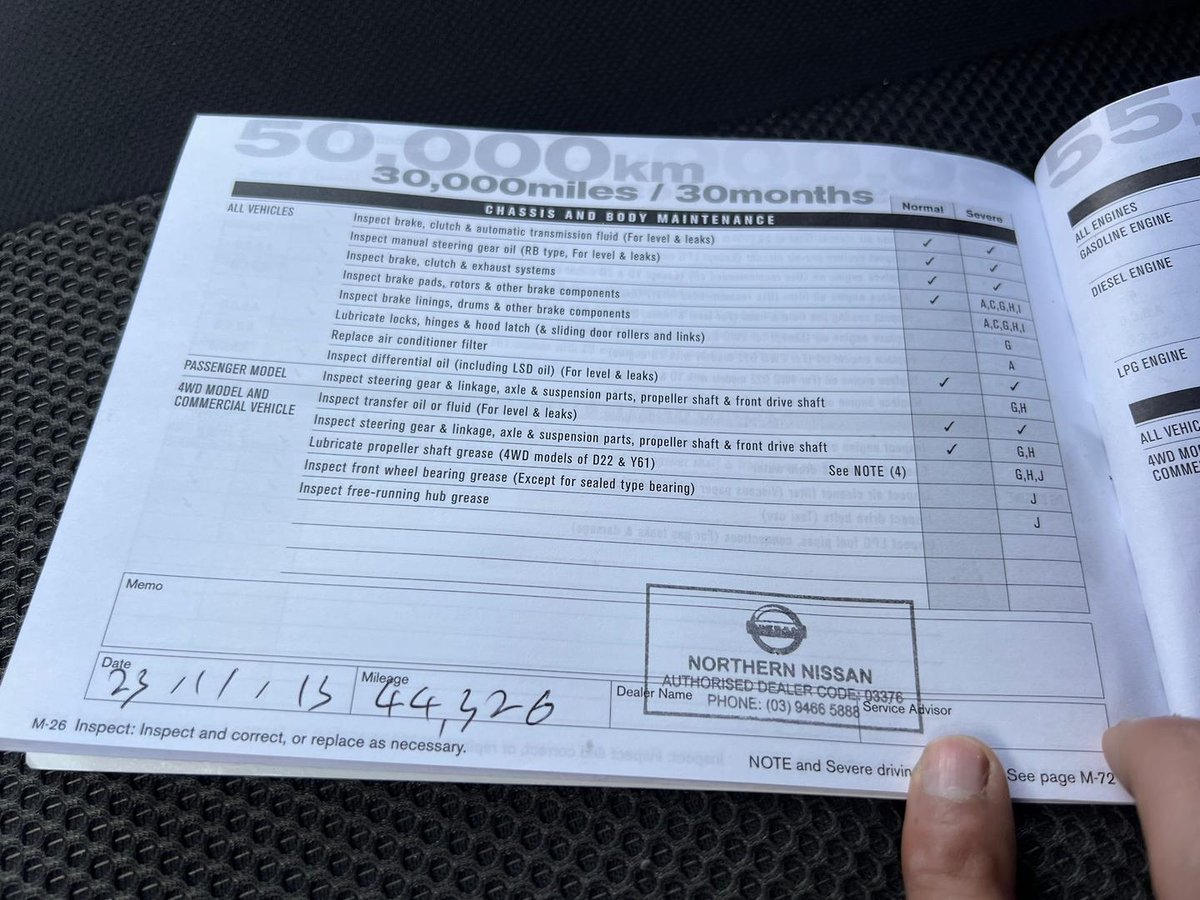 50,000km
30,000miles / 30months
CHASSIS AND BODY MAINTENANCE Normal Severe
ALL VEHICLES Inspect brake, clutch & automatic transmission fluid (For level & leaks) ✓ ✓
Inspect manual steering gear oil (RB type, For level & leaks) ✓ ✓
Inspect brake, clutch & exhaust systems ✓ ✓
Inspect brake pads, rotors & other brake components ✓ A,C,G,H,I
Inspect brake linings, drums & other brake components A,C,G,H,I
Lubricate locks, hinges & hood latch (& sliding door rollers and links) G
Replace air conditioner filter A
Inspect differential oil (including LSD oil) (For level & leaks) ✓ ✓
PASSENGER MODEL Inspect steering gear & linkage, axle & suspension parts, propeller shaft & front drive shaft G,H
4WD MODEL AND
COMMERCIAL VEHICLE
Inspect transfer oil or fluid (For level & leaks) ✓ ✓
Inspect steering gear & linkage, axle & suspension parts, propeller shaft & front drive shaft ✓ G,H
Lubricate propeller shaft grease (4WD models of D22 & Y61) See NOTE (4) G,H,J
Inspect front wheel bearing grease (Except for sealed type bearing) J
Inspect free-running hub grease J
Memo
NISSAN
NORTHERN NISSAN
AUTHORISED DEALER CODE: 03376
PHONE: (03) 9466 5888
Date 23/11/13
Mileage 44,326
Dealer Name
Service Advisor
M-26 Inspect: Inspect and correct, or replace as necessary.
NOTE and Severe drivin
See page M-72
55,
ALL ENGINES
GASOLINE ENGINE
DIESEL ENGINE
LPG ENGINE
ALL VEHIC
4WD MO
COMME